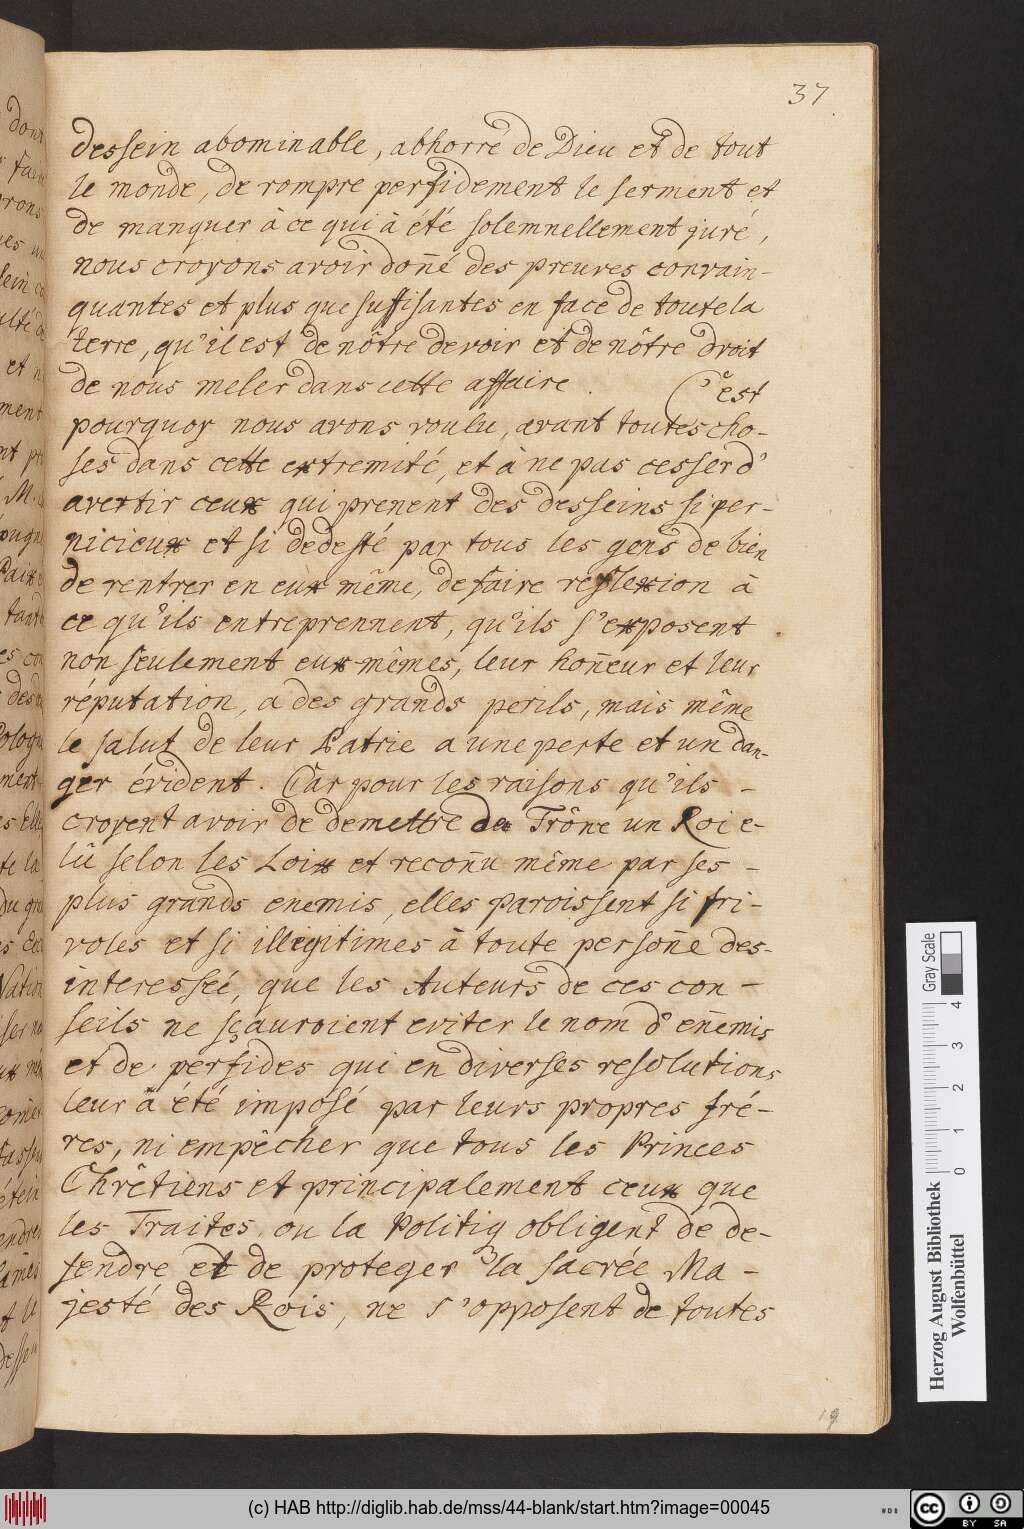 37
dessein abominable, abhorré de Dieu et de tout
le monde, de rompre perfidement le serment et
de manquer à ce qui à été solemnellement juré,
nous croyons avoir doñé des preuves convain-
quantes et plus que suffisantes en face de toute la
terre, qu'il est de nôtre devoir et de nôtre droit
de nous meler dans cette affaire. C'est
pourquoy nous avons voulu, avant toutes cho-
ses dans cette extremité, et à ne pas cesser d'
avertir ceux qui prenent des desseins si per-
nicieux et si dedesté par tous les gens de bien
de rentrer en eux même, de faire reflexion à
ce qu'ils entreprennent, qu'ils s'exposent
non seulement eux-mêmes, leur hoñeur et leur
réputation, a des grands perils, mais même
le salut de leur Patrie a une perte et un dan-
ger évident. Car pour les raisons qu'ils -
croyent avoir de demettre du Trône un Roi e-
lû selon les Loix et recoñu même par ses -
plus grands enemis, elles paroissent si fri-
voles et si illegitimes à toute persoñe des-
interessée, que les Auteurs de ces con-
seils ne sçauroient eviter le nom d'eñemis
et de perfides qui en diverses resolutions
leur à été imposé par leurs propres fré-
res, ni empêcher que tous les Princes
Chrêtiens et principalement ceux que
les Traites, ou la Politiq obligent de de-
fendre et de proteger la sacrée Ma-
jesté des Rois, ne s'opposent de toutes
19
Herzog August Bibliothek
Wolfenbüttel
0 1 2 3 4
Gray Scale
(c) HAB http://diglib.hab.de/mss/44-blank/start.htm?image=00045
WDB
cc BY SA